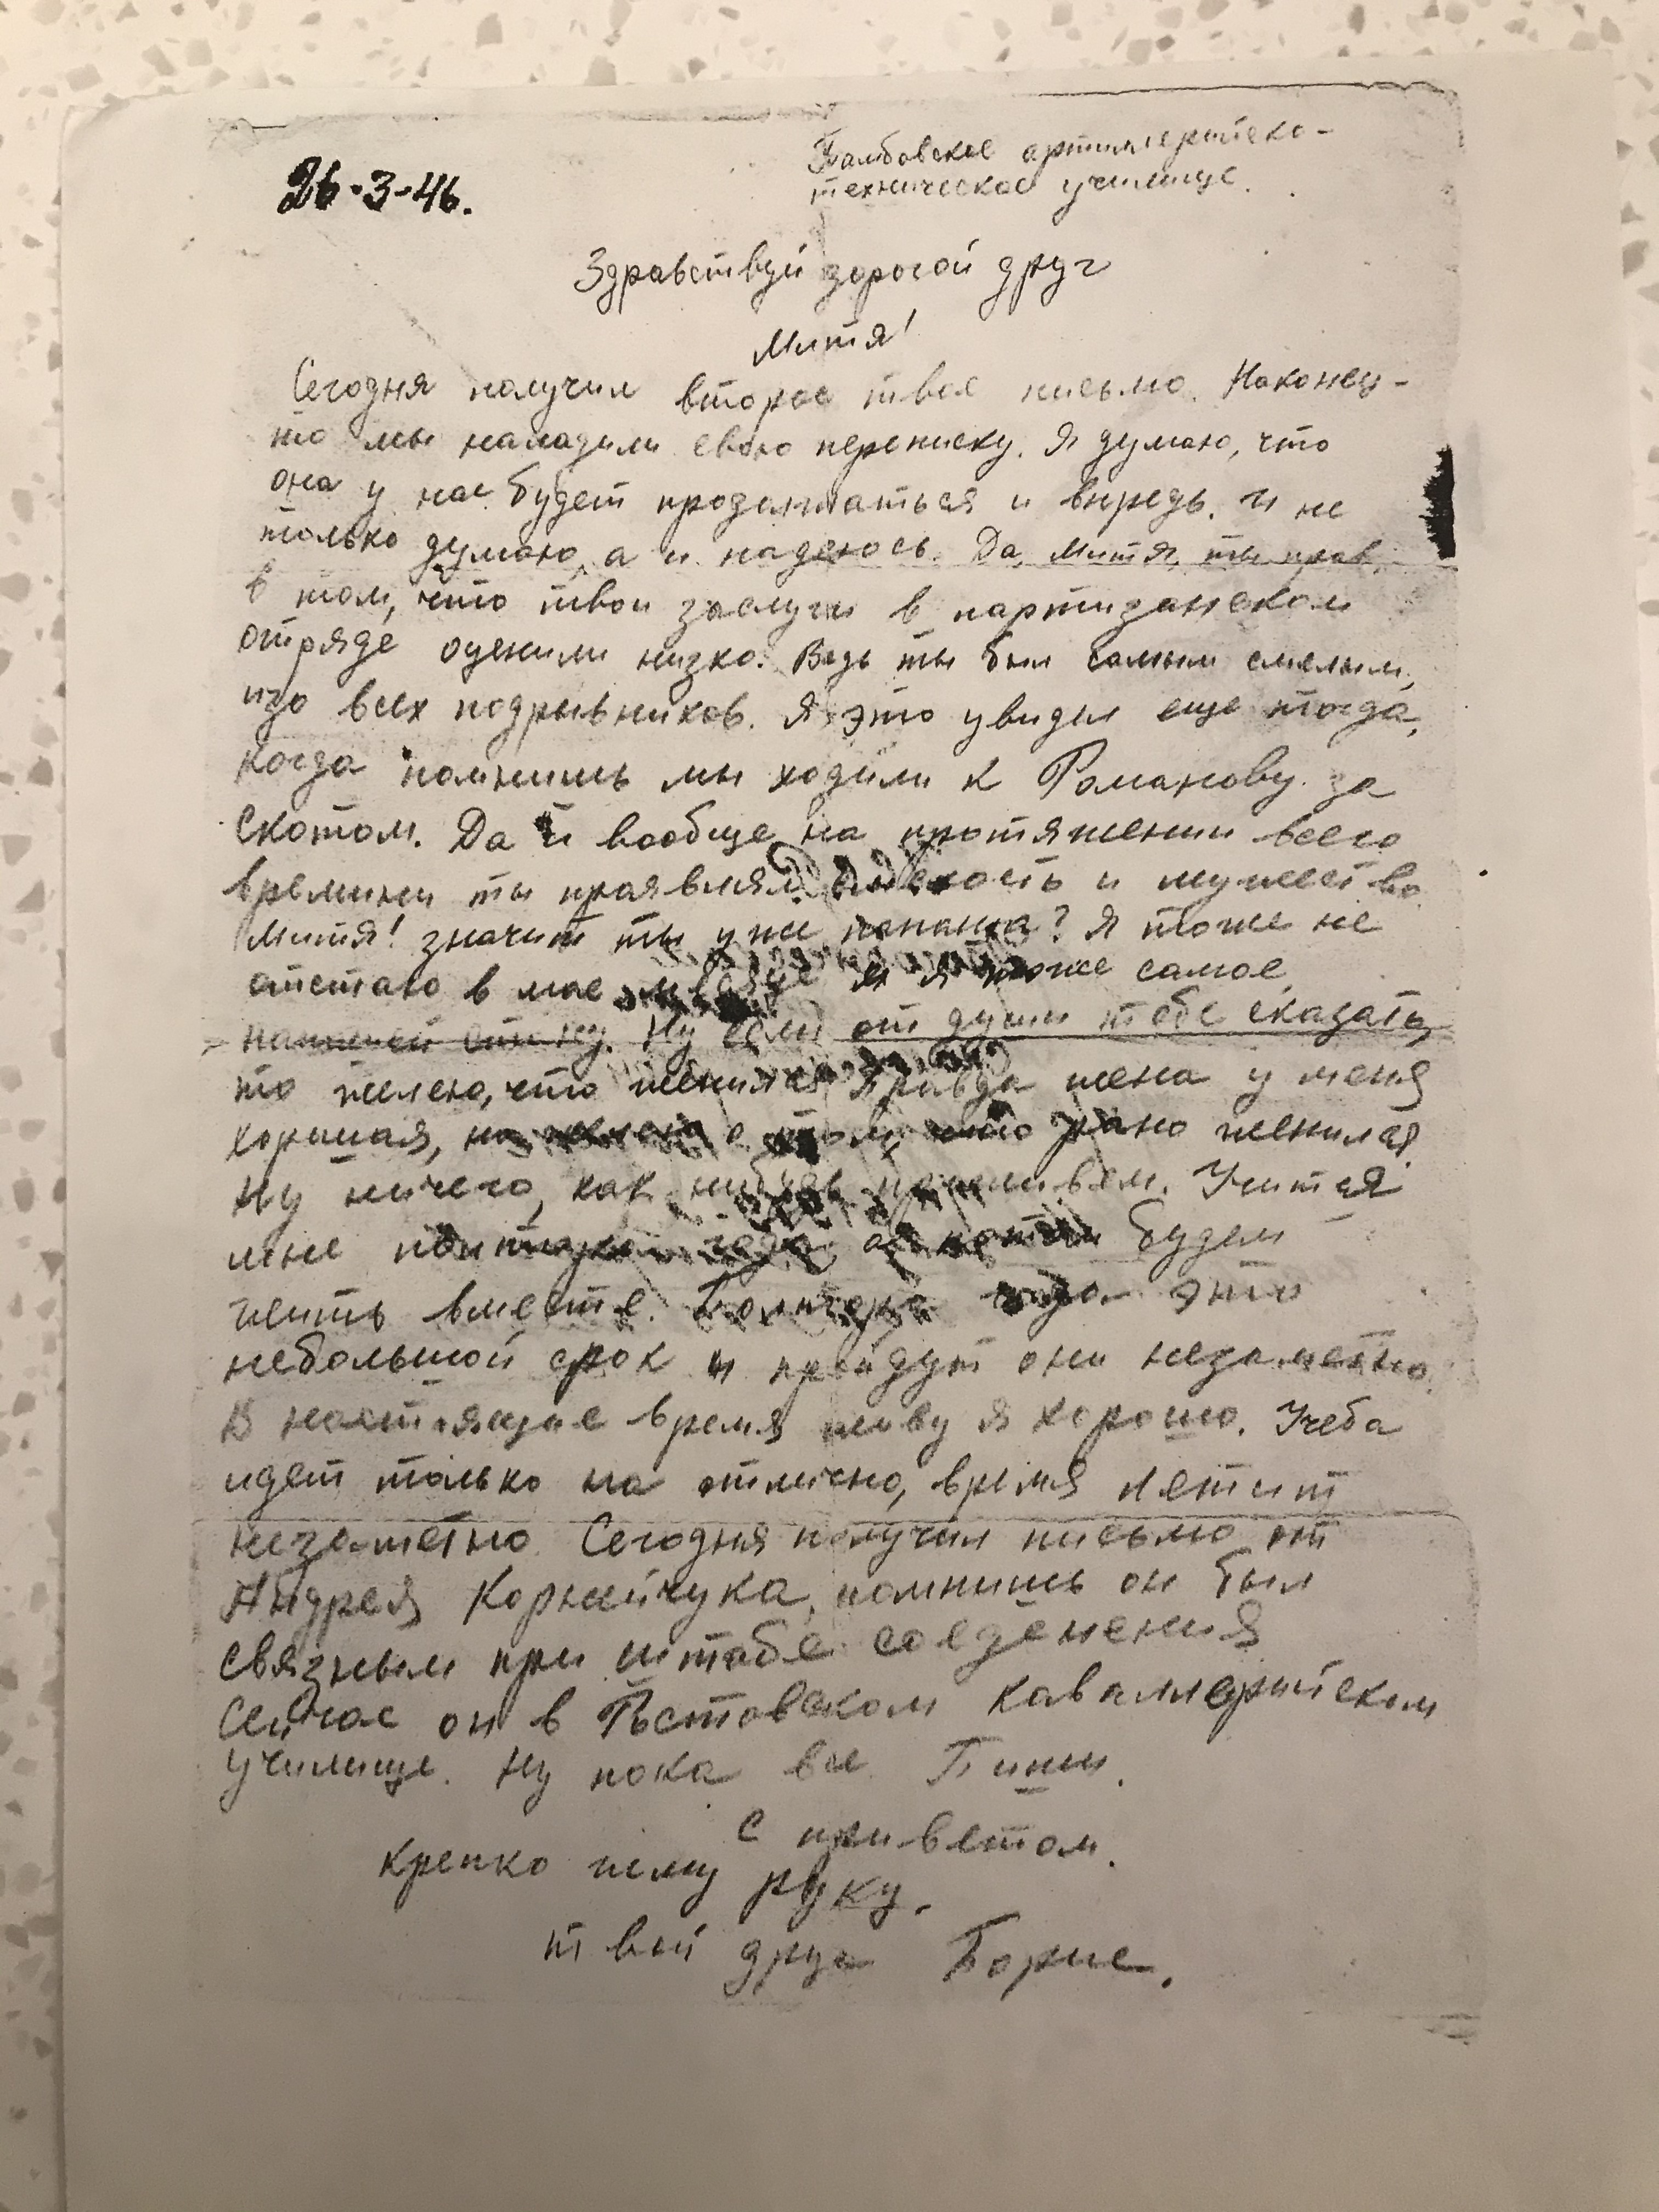 26-3-46.
Тамбовское артиллерийско-
техническое училище.
Здравствуй дорогой друг
Митя!
Сегодня получил второе твое письмо. Наконец-
то мы наладили свою переписку. Я думаю, что
она у нас будет продолжаться и впредь. И не
только думаю, а и надеюсь. Да, Митя, ты прав,
в том, что твои заслуги в партизанском
отряде оценили низко. Ведь ты был самым смелым,
изо всех подрывников. Я это увидел еще тогда,
когда помнишь мы ходили к Романову за
скотом. Да и вообще на протяжении всего
времини ты проявлял смелость и мужество.
Митя! значит ты уже папаша? Я тоже не
отстаю в мае месяце и я тоже самое
Ну если от души тебе сказать,
то жалею, что женился Правда жена у меня
хорошая, но жалею о том, что рано женился.
Ну ничего, как нибудь проживем. Учится
мне полтора года, а потом будем
жить вместе. Полтора года это
небольшой срок и пройдут они незаметно.
В настоящее время живу я хорошо. Учеба
идет только на отлично, время летит
незаметно. Сегодня получил письмо от
Андрея Корнейчука, помнишь он был
связным при штабе соединения
Сейчас он в Ростовском каваллерийском
училище. Ну пока все. Пиши.
с приветом.
крепко жму руку.
твой друг Борис.